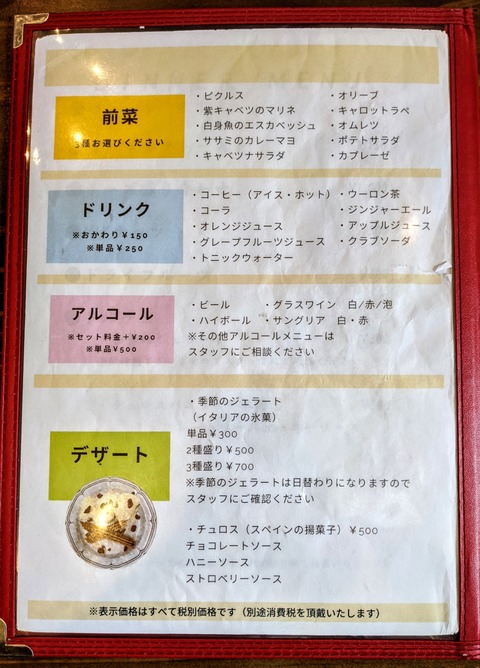 前菜
3種お選びください
・ピクルス
・紫キャベツのマリネ
・白身魚のエスカベッシュ
・ササミのカレーマヨ
・キャベツナサラダ
・オリーブ
・キャロットラペ
・オムレツ
・ポテトサラダ
・カプレーゼ
ドリンク
※おかわり￥150
※単品￥250
・コーヒー（アイス・ホット）
・コーラ
・オレンジジュース
・グレープフルーツジュース
・トニックウォーター
・ウーロン茶
・ジンジャーエール
・アップルジュース
・クラブソーダ
アルコール
※セット料金＋￥200
※単品￥500
・ビール　・グラスワイン　白/赤/泡
・ハイボール　・サングリア　白・赤
※その他アルコールメニューは
スタッフにご相談ください
デザート
・季節のジェラート
（イタリアの氷菓）
単品￥300
2種盛り￥500
3種盛り￥700
※季節のジェラートは日替わりになりますので
スタッフにご確認ください
・チュロス（スペインの揚菓子）￥500
チョコレートソース
ハニーソース
ストロベリーソース
※表示価格はすべて税別価格です（別途消費税を頂戴いたします）